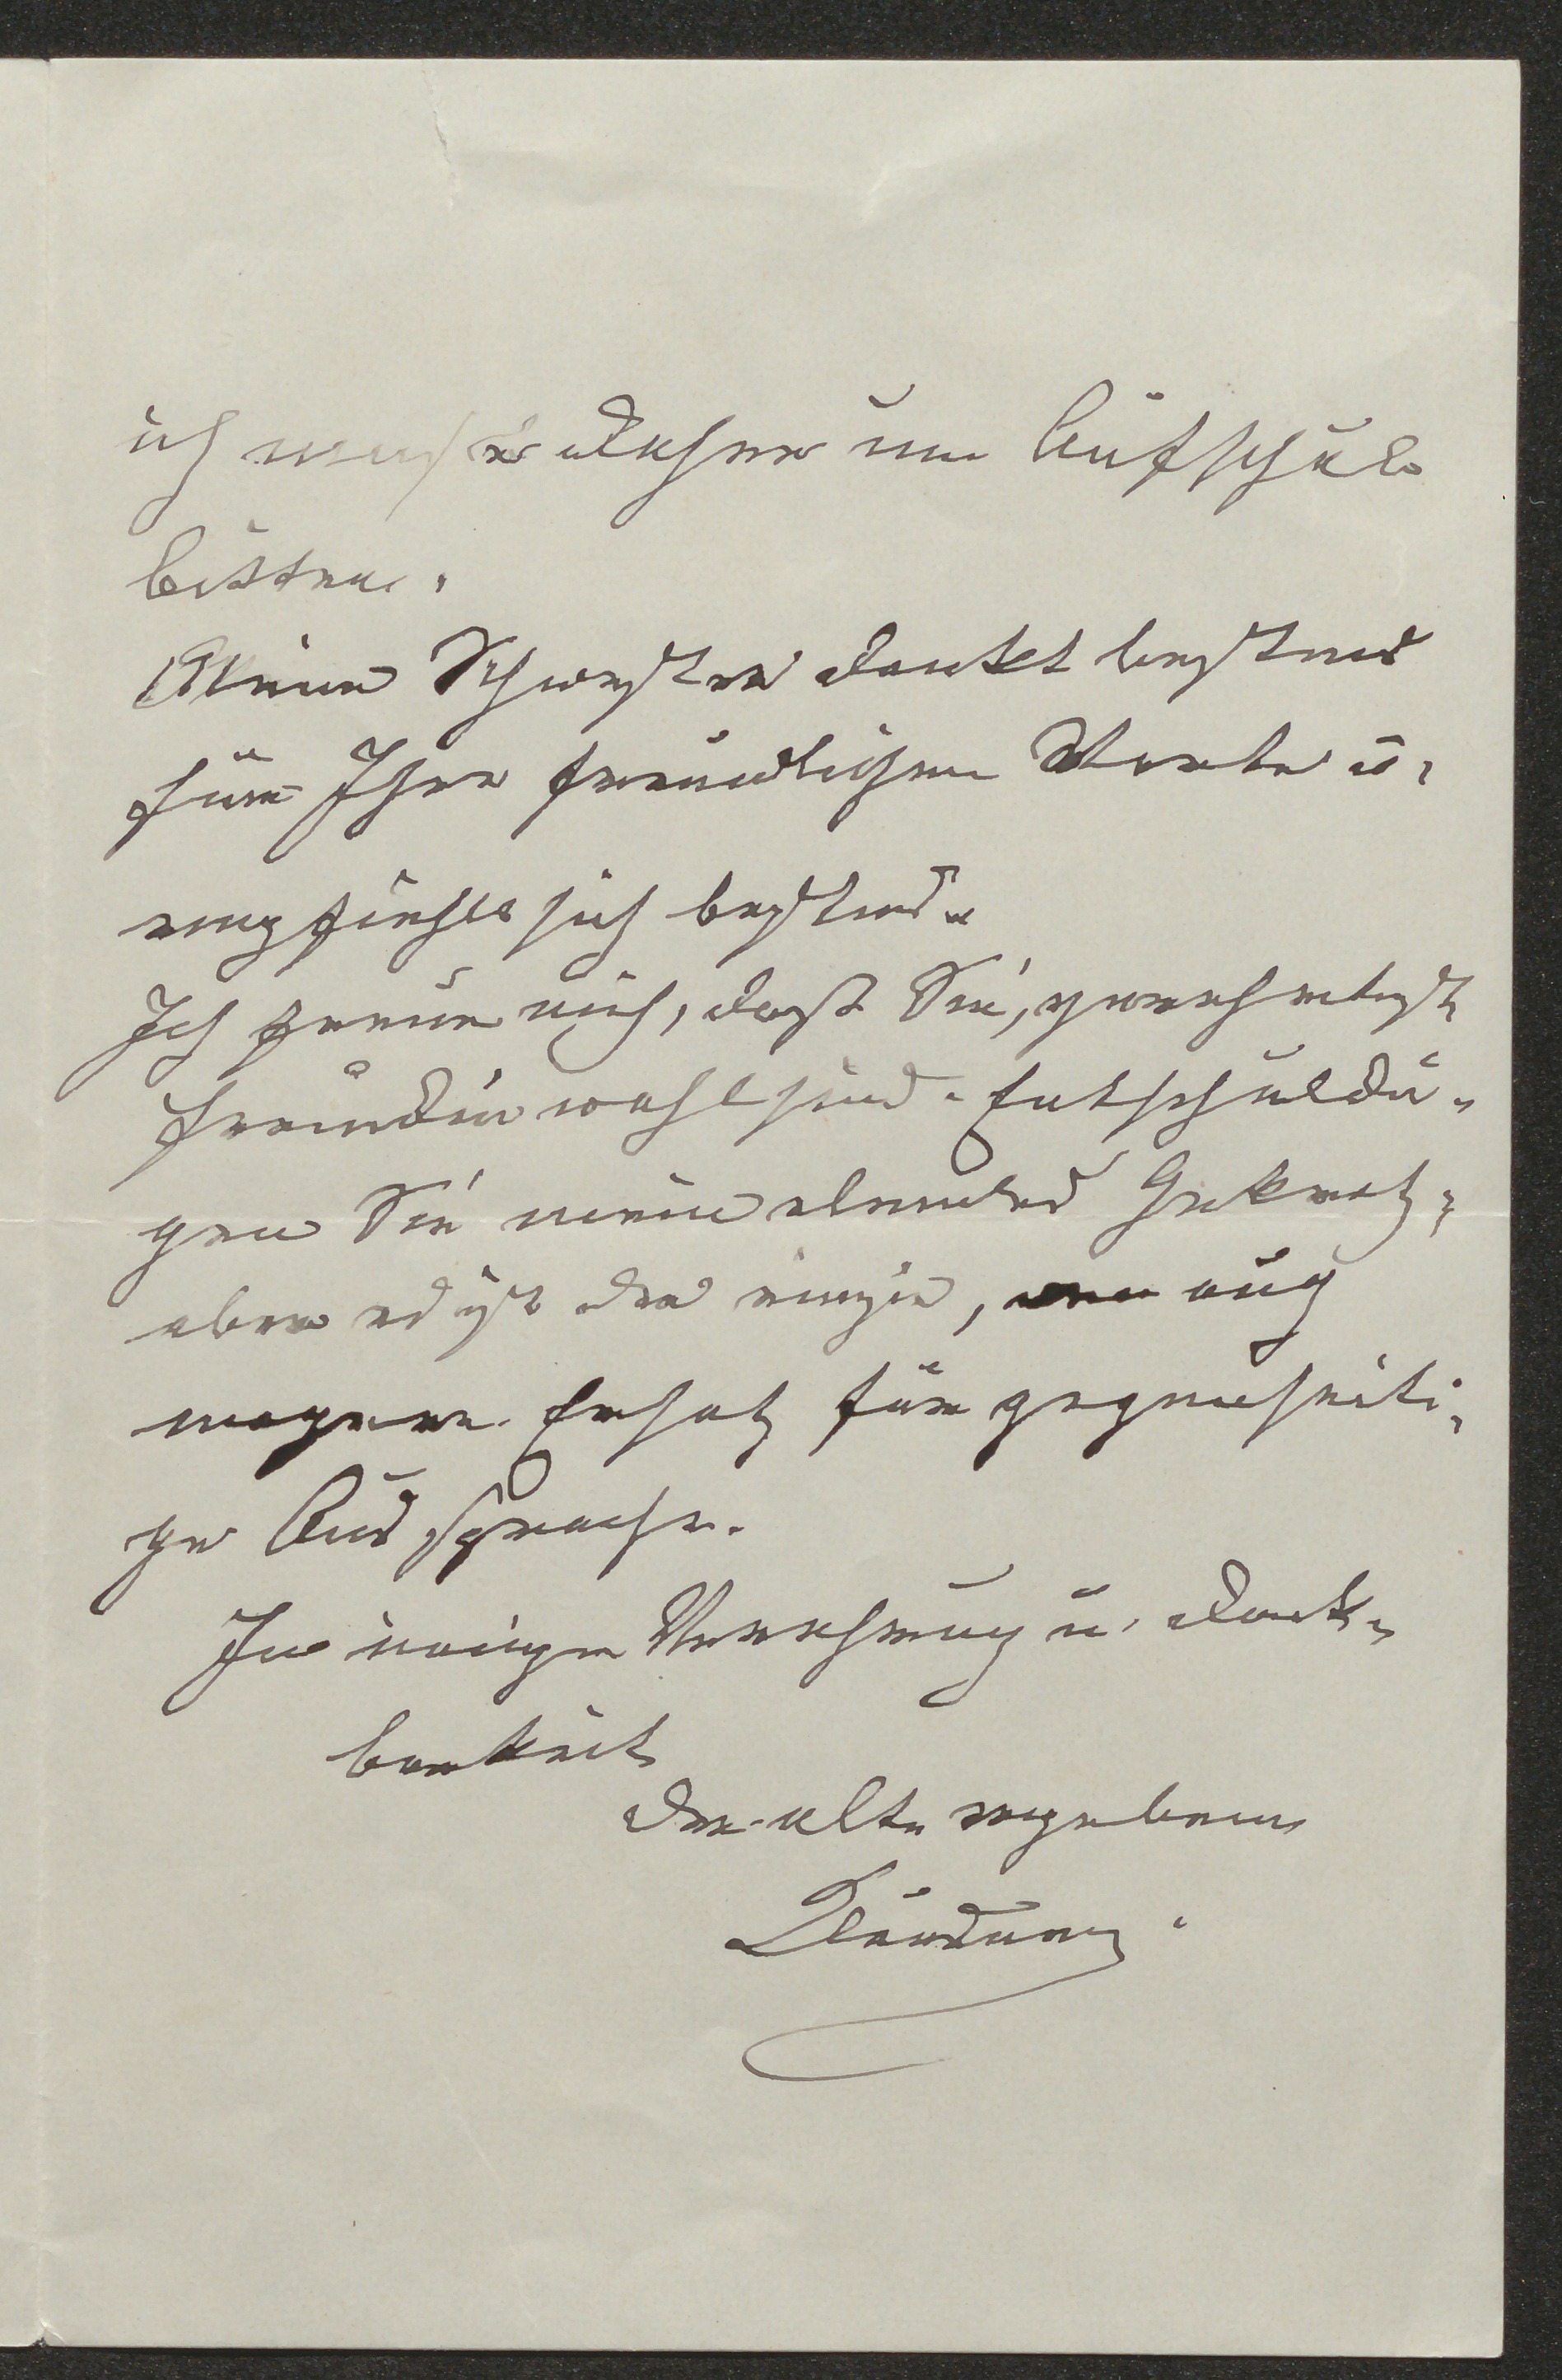 ich muß daher um Aufschub
bitten.
Meine Schwester dankt bestens
für Ihre freundlichen Worte u.
empfiehlt sich bestens.
Ich freue mich, daß Sie, verehrteste
Freundin wohl sind. Entschuldi-
gen Sie mein elendes Gekratz,
aber es ist der einzige, wenn auch
magere Ersatz für gegenseiti-
ge Aussprache.
In inniger Verehrung u. Dank-
barkeit
der alte ergebene